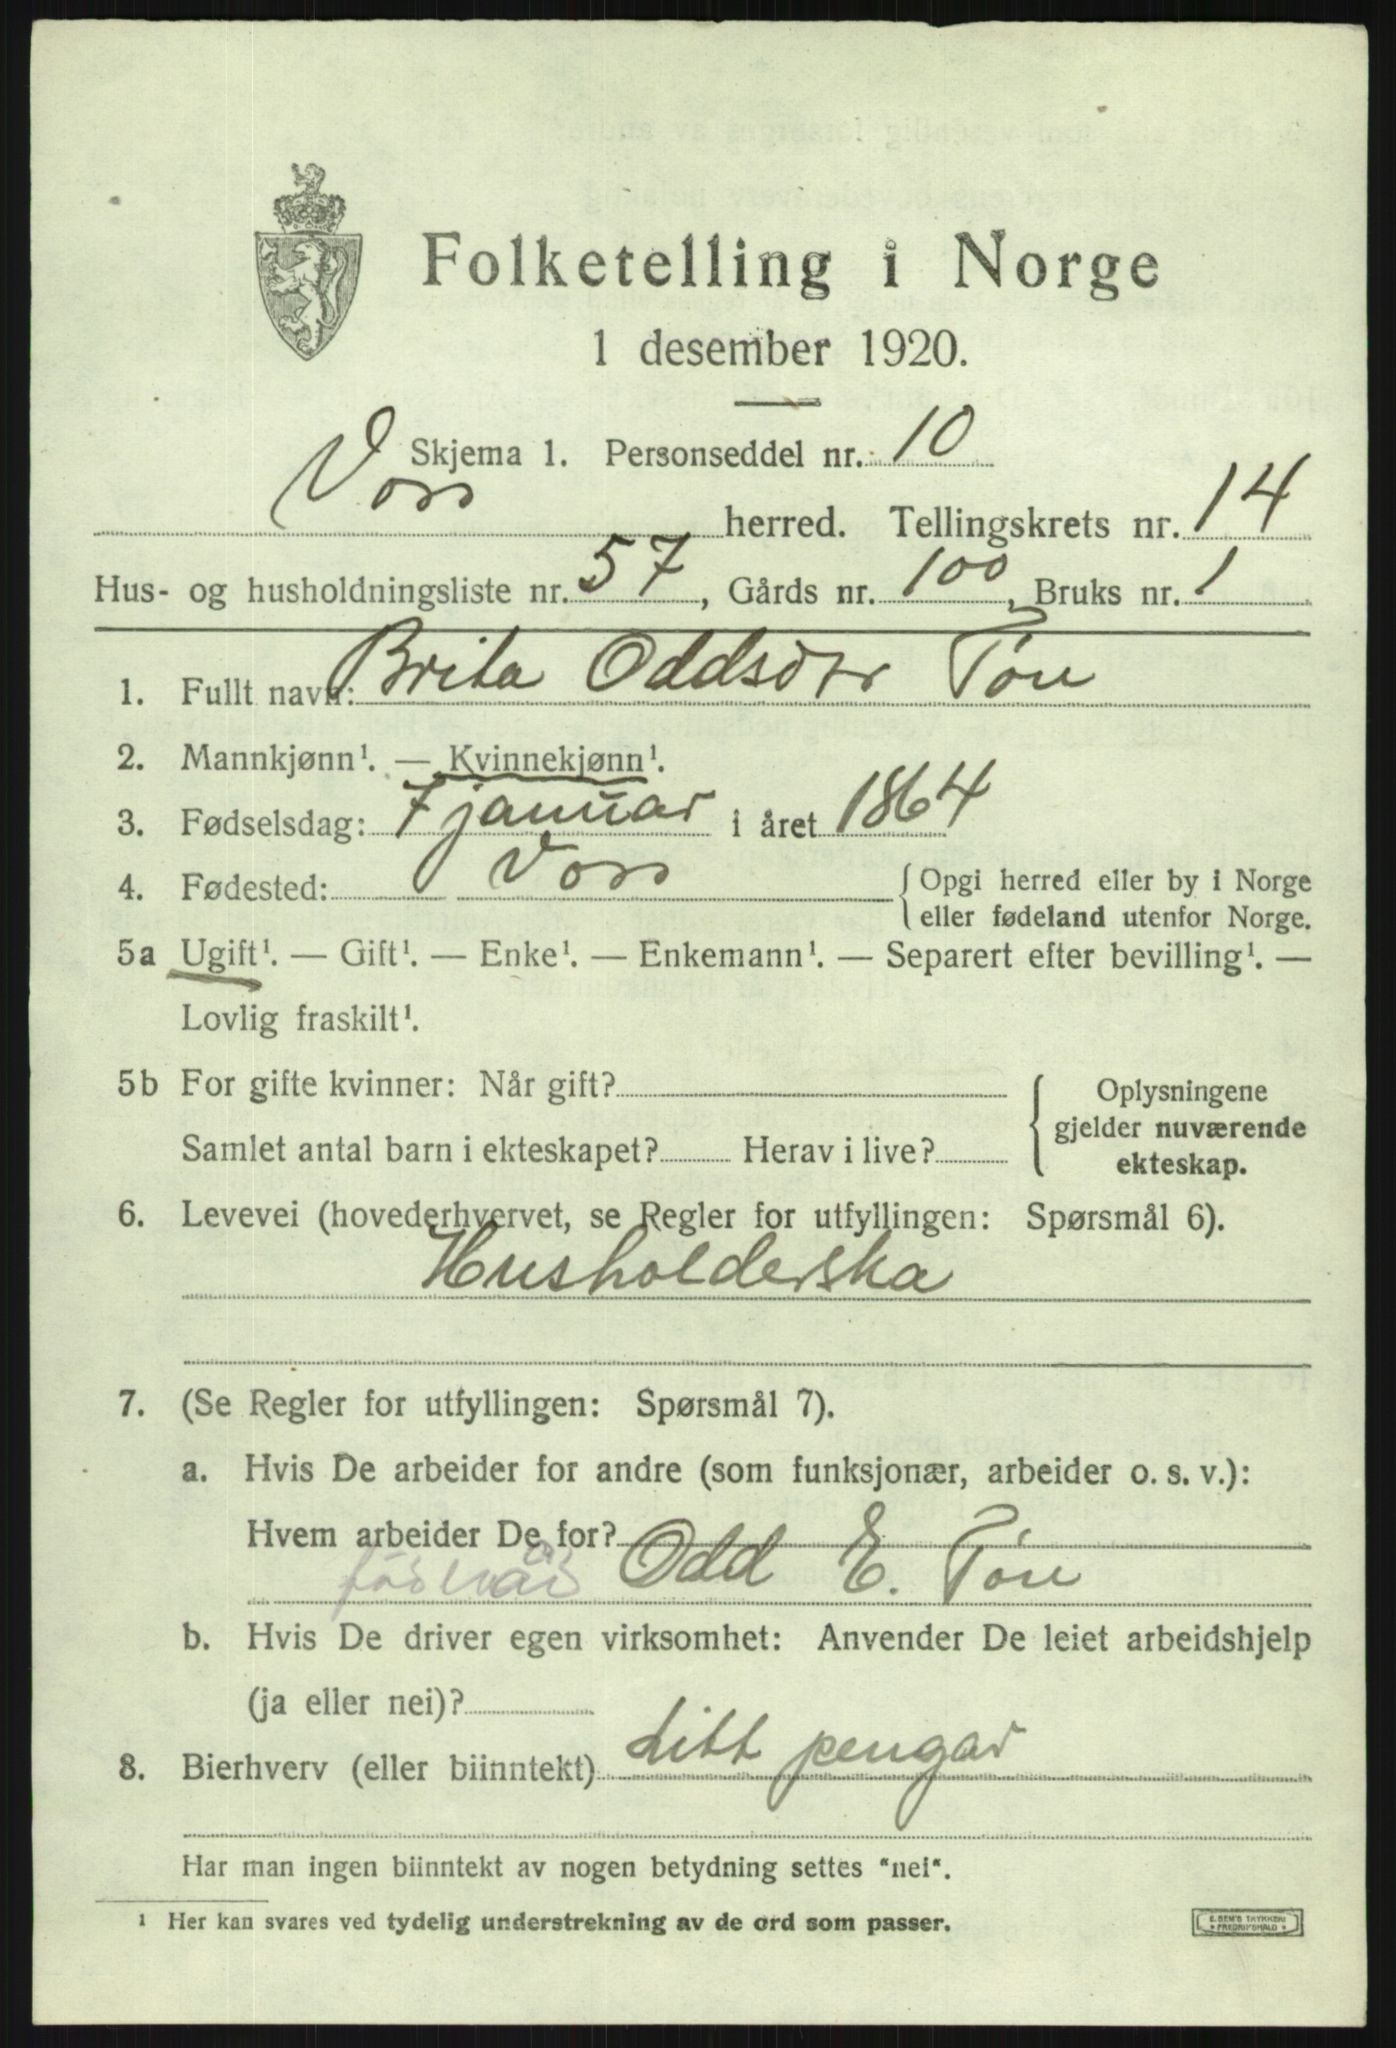 Folketelling i Norge
1 desember 1920.
Skjema 1. Personseddel nr. 10
Voss herred. Tellingskrets nr. 14
Hus- og husholdningsliste nr. 57, Gårds nr. 100, Bruks nr. 1
1. Fullt navn: Brita Oddsdtr Tøn
2. Mannkjønn¹. — Kvinnekjønn¹.
3. Fødselsdag: 7 januar i året 1864
4. Fødested: Voss { Opgi herred eller by i Norge
eller fødeland utenfor Norge.
5a Ugift¹. — Gift¹. — Enke¹. — Enkemann¹. — Separert efter bevilling¹. —
Lovlig fraskilt¹.
5b For gifte kvinner: Når gift? { Oplysningene
gjelder nuværende
Samlet antal barn i ekteskapet? Herav i live?
ekteskap.
6. Levevei (hovederhvervet, se Regler for utfyllingen: Spørsmål 6).
Husholderska
7. (Se Regler for utfyllingen: Spørsmål 7).
a. Hvis De arbeider for andre (som funksjonær, arbeider o. s. v.):
Hvem arbeider De for?
Odd E. Tøn
b. Hvis De driver egen virksomhet: Anvender De leiet arbeidshjelp
(ja eller nei)?
8. Bierhverv (eller biinntekt) Litt pengar
Har man ingen biinntekt av nogen betydning settes "nei".
¹ Her kan svares ved tydelig understrekning av de ord som passer.
E. SEM'S TRYKKERI
FREDRIKSHALD